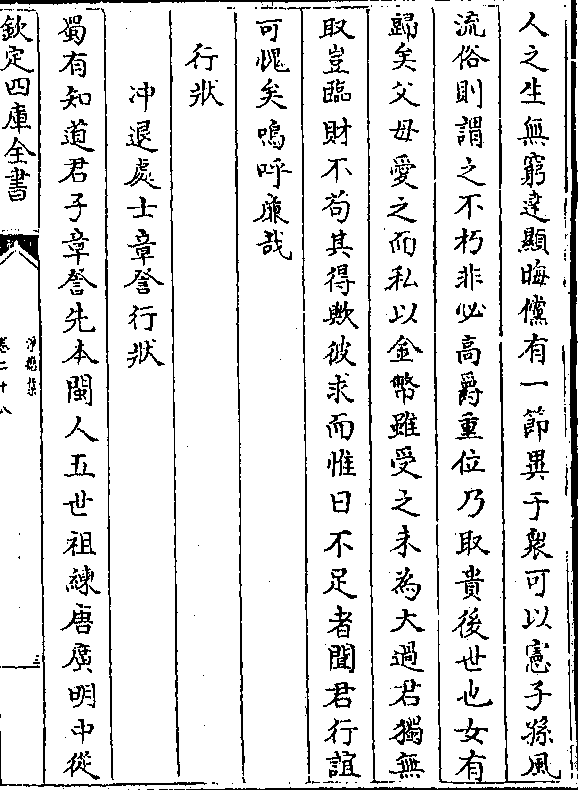 人之生無窮達顯晦儻有一節異于衆可以憲子孫風
流俗則謂之不朽非必高爵重位乃取貴後世也女有
歸矣父母愛之而私以金幣雖受之未為大過君獨無
取豈臨財不苟其得歟彼求而惟日不足者聞君行誼
可愧矣嗚呼廉哉
行狀
冲退處士章詧行狀
蜀有知道君子章詧先本閩人五世祖練唐廣明中從
欽定四庫全書
淨德集
卷二十八